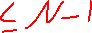 ≤ N - 1